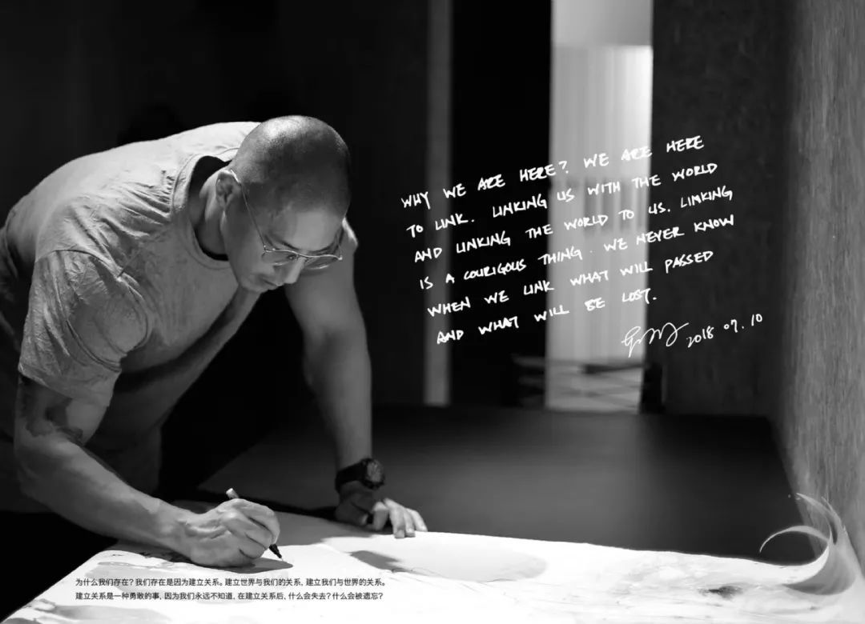 WHY WE ARE HERE? WE ARE HERE
TO LINK. LINKING US WITH THE WORLD
AND LINKING THE WORLD TO US. LINKING
IS A COURIGOUS THING. WE NEVER KNOW
WHEN WE LINK WHAT WILL PASSED
AND WHAT WILL BE LOST.
2018 07. 10
为什么我们存在? 我们存在是因为建立关系。建立世界与我们的关系, 建立我们与世界的关系。
建立关系是一种勇敢的事, 因为我们永远不知道, 在建立关系后, 什么会失去? 什么会被遗忘?